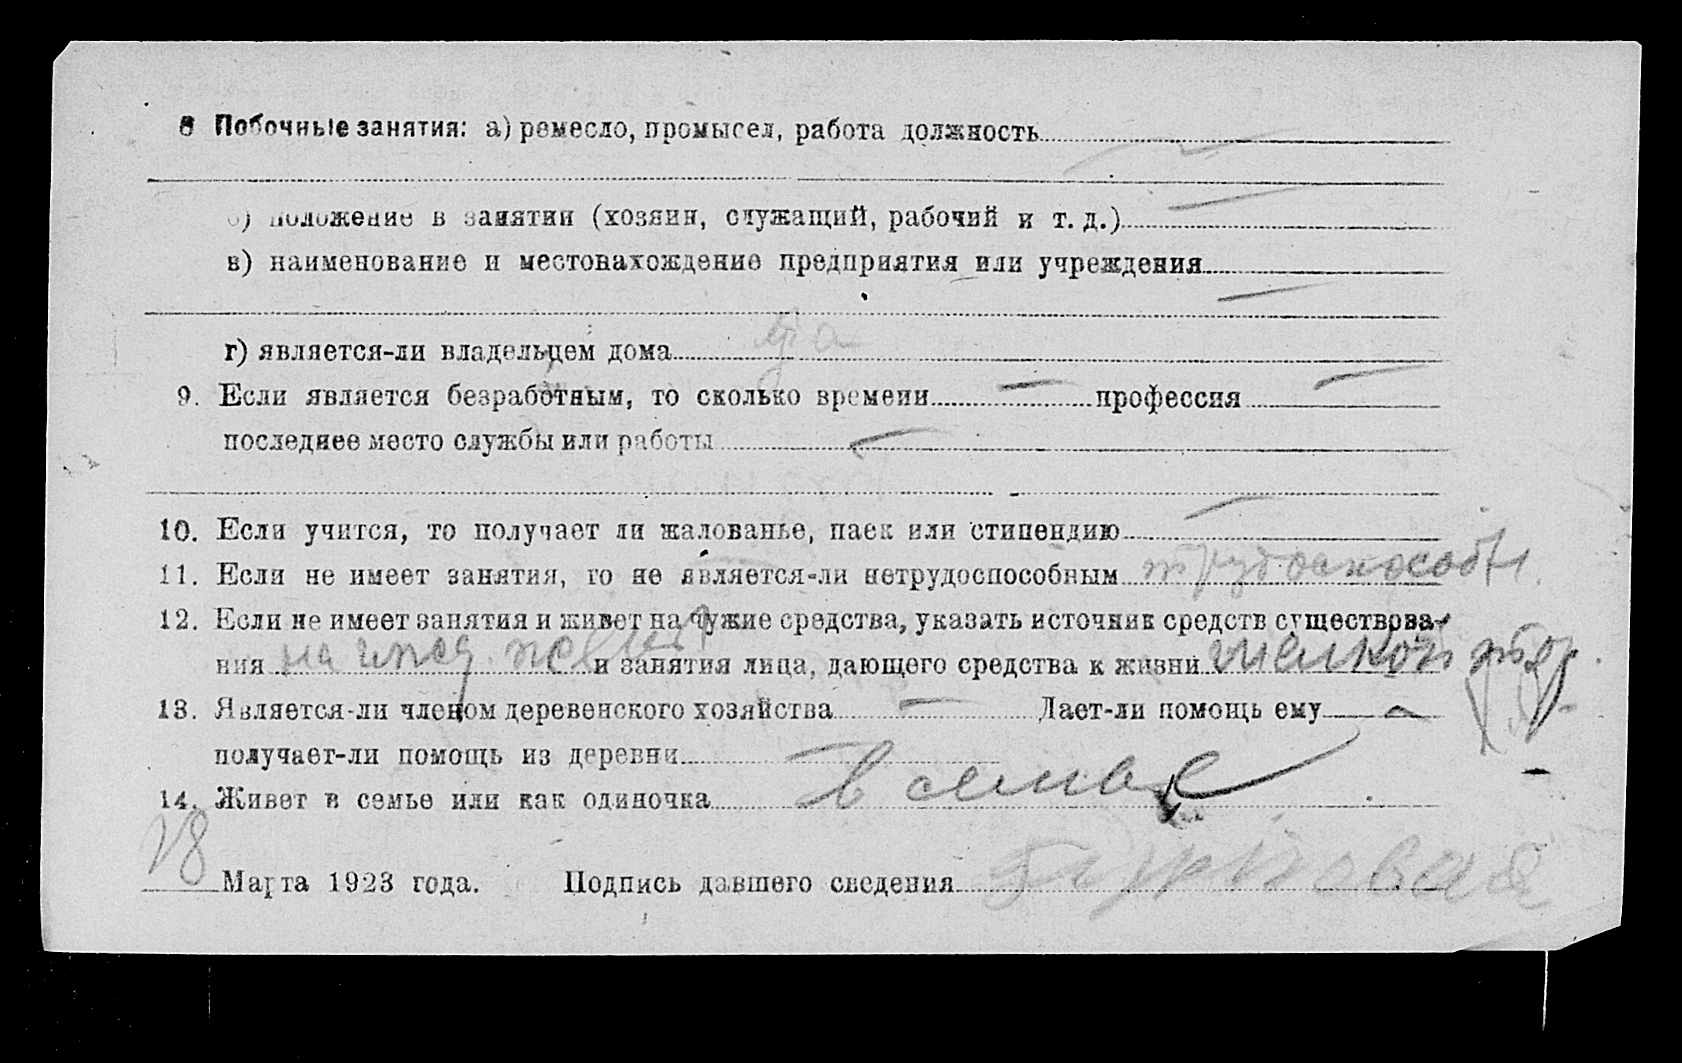 8 Побочные занятия: а) ремесло, промысел, работа должность —
б) положение в занятии (хозяин, служащий, рабочий и т. д.) —
в) наименование и местонахождение предприятия или учреждения —
г) является-ли владельцем дома да
9. Если является безработным, то сколько времени — профессия —
последнее место службы или работы —
10. Если учится, то получает ли жалованье, паек или стипендию —
11. Если не имеет занятия, то не является-ли нетрудоспособным трудоспособн.
12. Если не имеет занятия и живет на чужие средства, указать источник средств существова-
ния на ижд. и занятия лица, дающего средства к жизни мелкой
13. Является-ли членом деревенского хозяйства — Дает-ли помощь ему —
получает-ли помощь из деревни —
14. Живет в семье или как одиночка в семье
18 Марта 1923 года. Подпись давшего сведения